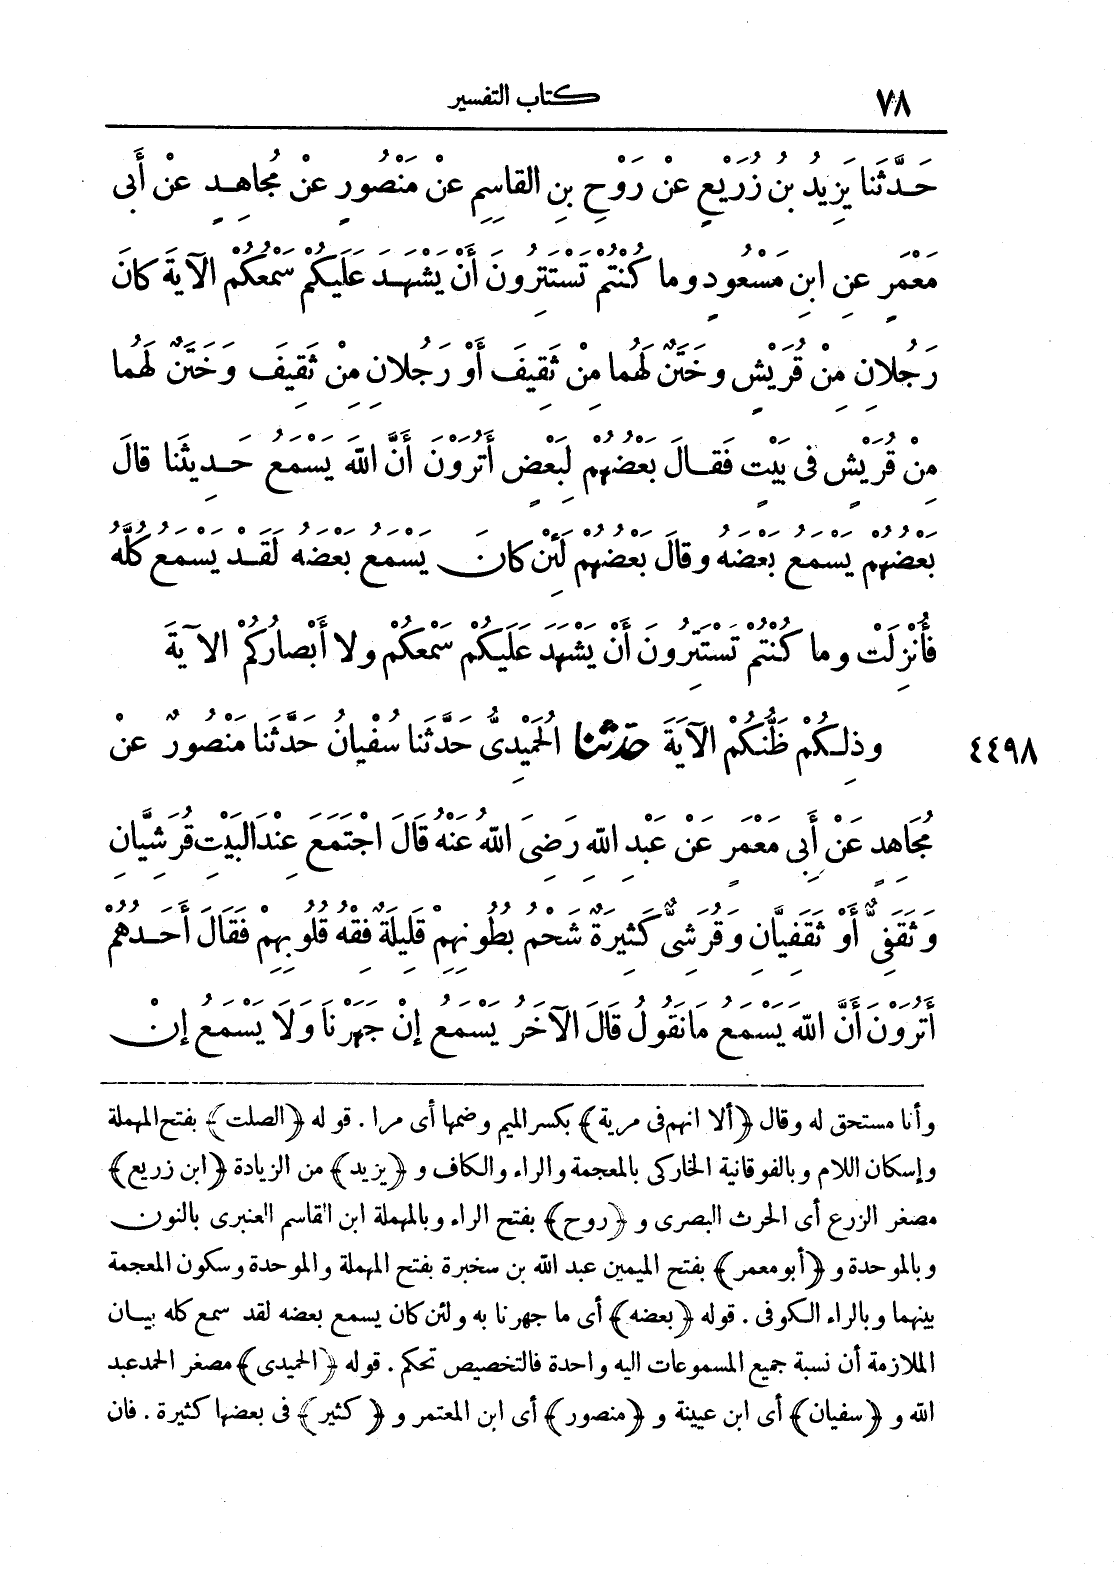 ٧٨ كتاب التفسير
حَدَّثَنا يَزِيدُ بنُ زُرَيْعٍ عنْ رَوْحِ بنِ القاسِمِ عنْ مَنْصُورٍ عنْ مُجاهِدٍ عنْ أَبى
مَعْمَرٍ عنِ ابنِ مَسْعُودٍ وما كُنْتُمْ تَسْتَتِرُونَ أَنْ يَشْهَدَ عَلَيكُمْ سَمْعُكُمْ الآيةَ كانَ
رَجُلانِ مِنْ قُرَيْشٍ وخَتَنٌ لَهُما مِنْ ثَقِيفَ أَوْ رَجُلانِ مِنْ ثَقِيفَ وخَتَنٌ لَهُما
مِنْ قُرَيْشٍ فى بَيْتٍ فَقالَ بَعْضُهُمْ لِبَعْضٍ أَتُرَوْنَ أَنَّ اللهَ يَسْمَعُ حَدِيثَنا قالَ
بَعْضُهُمْ يَسْمَعُ بَعْضَهُ وقالَ بَعْضُهُمْ لَئِنْ كانَ يَسْمَعُ بَعْضَهُ لَقَدْ يَسْمَعُ كُلَّهُ
فَأُنْزِلَتْ وما كُنْتُمْ تَسْتَتِرُونَ أَنْ يَشْهَدَ عَلَيكُمْ سَمْعُكُمْ ولا أَبْصارُكُمْ الآيةَ
٤٤٩٨ وذلِكُمْ ظَنُّكُمْ الآيَةَ حدثنا الحُمَيْدِىُّ حَدَّثَنا سُفْيانُ حَدَّثَنا مَنْصُورٌ عنْ
مُجَاهِدٍ عَنْ أَبِى مَعْمَرٍ عَنْ عَبْدِ اللهِ رَضِىَ اللهُ عَنْهُ قَالَ اجْتَمَعَ عِنْدَ البَيْتِ قُرَشِيَّانِ
وَثَقَفِىٌّ أَوْ ثَقَفِيَّانِ وَقُرَشِىٌّ كَثِيرَةٌ شَحْمُ بُطُونِهِمْ قَلِيلَةٌ فِقْهُ قُلُوبِهِمْ فَقَالَ أَحَدُهُمْ
أَتُرَوْنَ أَنَّ اللهَ يَسْمَعُ مَا نَقُولُ قَالَ الآخَرُ يَسْمَعُ إِنْ جَهَرْنَا وَلَا يَسْمَعُ إِنْ
وأنا مستحق له وقال ﴿ألا انهم فى مرية﴾ بكسر الميم وضمها أى مرا . قوله ﴿الصلت﴾ بفتح المهملة
وإسكان اللام وبالفوقانية الخاركى بالمعجمة والراء والكاف و ﴿يزيد﴾ من الزيادة ﴿ابن زريع﴾
مصغر الزرع أى الحرث البصرى و ﴿روح﴾ بفتح الراء وبالمهملة ابن القاسم العنبرى بالنون
وبالموحدة و ﴿أبو معمر﴾ بفتح الميمين عبد الله بن سخبرة بفتح المهملة والموحدة وسكون المعجمة
بينهما وبالراء الكوفى . قوله ﴿بعضه﴾ أى ما جهرنا به ولئن كان يسمع بعضه لقد سمع كله بيان
الملازمة أن نسبة جميع المسموعات اليه واحدة فالتخصيص تحكم . قوله ﴿الحميدى﴾ مصغر الحمد عبد
الله و ﴿سفيان﴾ أى ابن عيينة و ﴿منصور﴾ أى ابن المعتمر و ﴿كثير﴾ فى بعضها كثيرة . فان